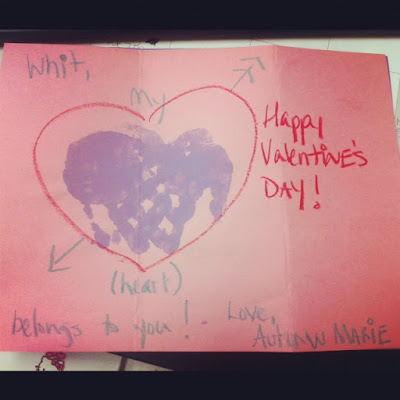 Whit,
My
Happy
Valentine's
DAY!
(heart)
belongs to you! - Love,
Autumn MARIE